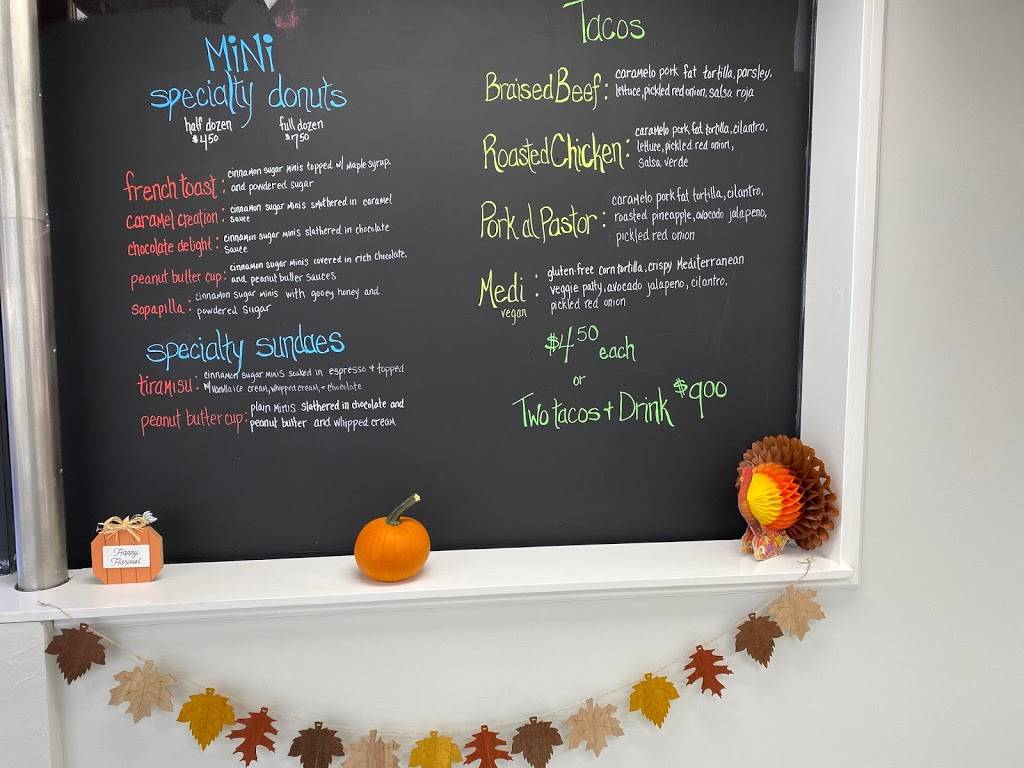 MiNi
specialty donuts
half dozen full dozen
$4.50 $7.50
french toast: cinnamon sugar minis topped w/ maple syrup.
and powdered sugar
caramel creation: cinnamon sugar minis smothered in caramel
sauce
chocolate delight: cinnamon sugar minis slathered in chocolate
sauce
peanut butter cup: cinnamon sugar minis covered in rich chocolate,
and peanut butter sauces
sopapilla: cinnamon sugar minis with gooey honey and
powdered sugar
specialty sundaes
tiramisu: cinnamon sugar minis soaked in espresso + topped
w/ vanilla ice cream, whipped cream, + chocolate
peanut butter cup: plain minis slathered in chocolate and
peanut butter and whipped cream
Tacos
Braised Beef: caramelo pork fat tortilla, parsley,
lettuce, pickled red onion, salsa roja
Roasted Chicken: caramelo pork fat tortilla, cilantro,
lettuce, pickled red onion,
salsa verde
Pork al Pastor: caramelo pork fat tortilla, cilantro,
roasted pineapple, avocado jalapeno,
pickled red onion
Medi: gluten-free corn tortilla, crispy Mediterranean
vegan veggie patty, avocado jalapeno, cilantro,
pickled red onion
$4.50 each
or
Two tacos + Drink $9.00
Happy
Harvest